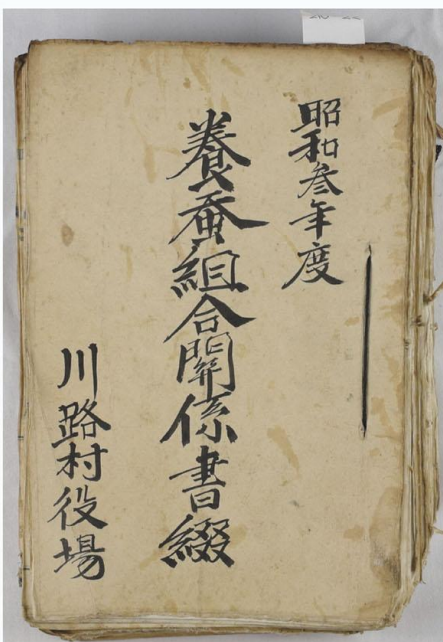 昭和叁年度
養蚕組合關係書綴
川路村役場